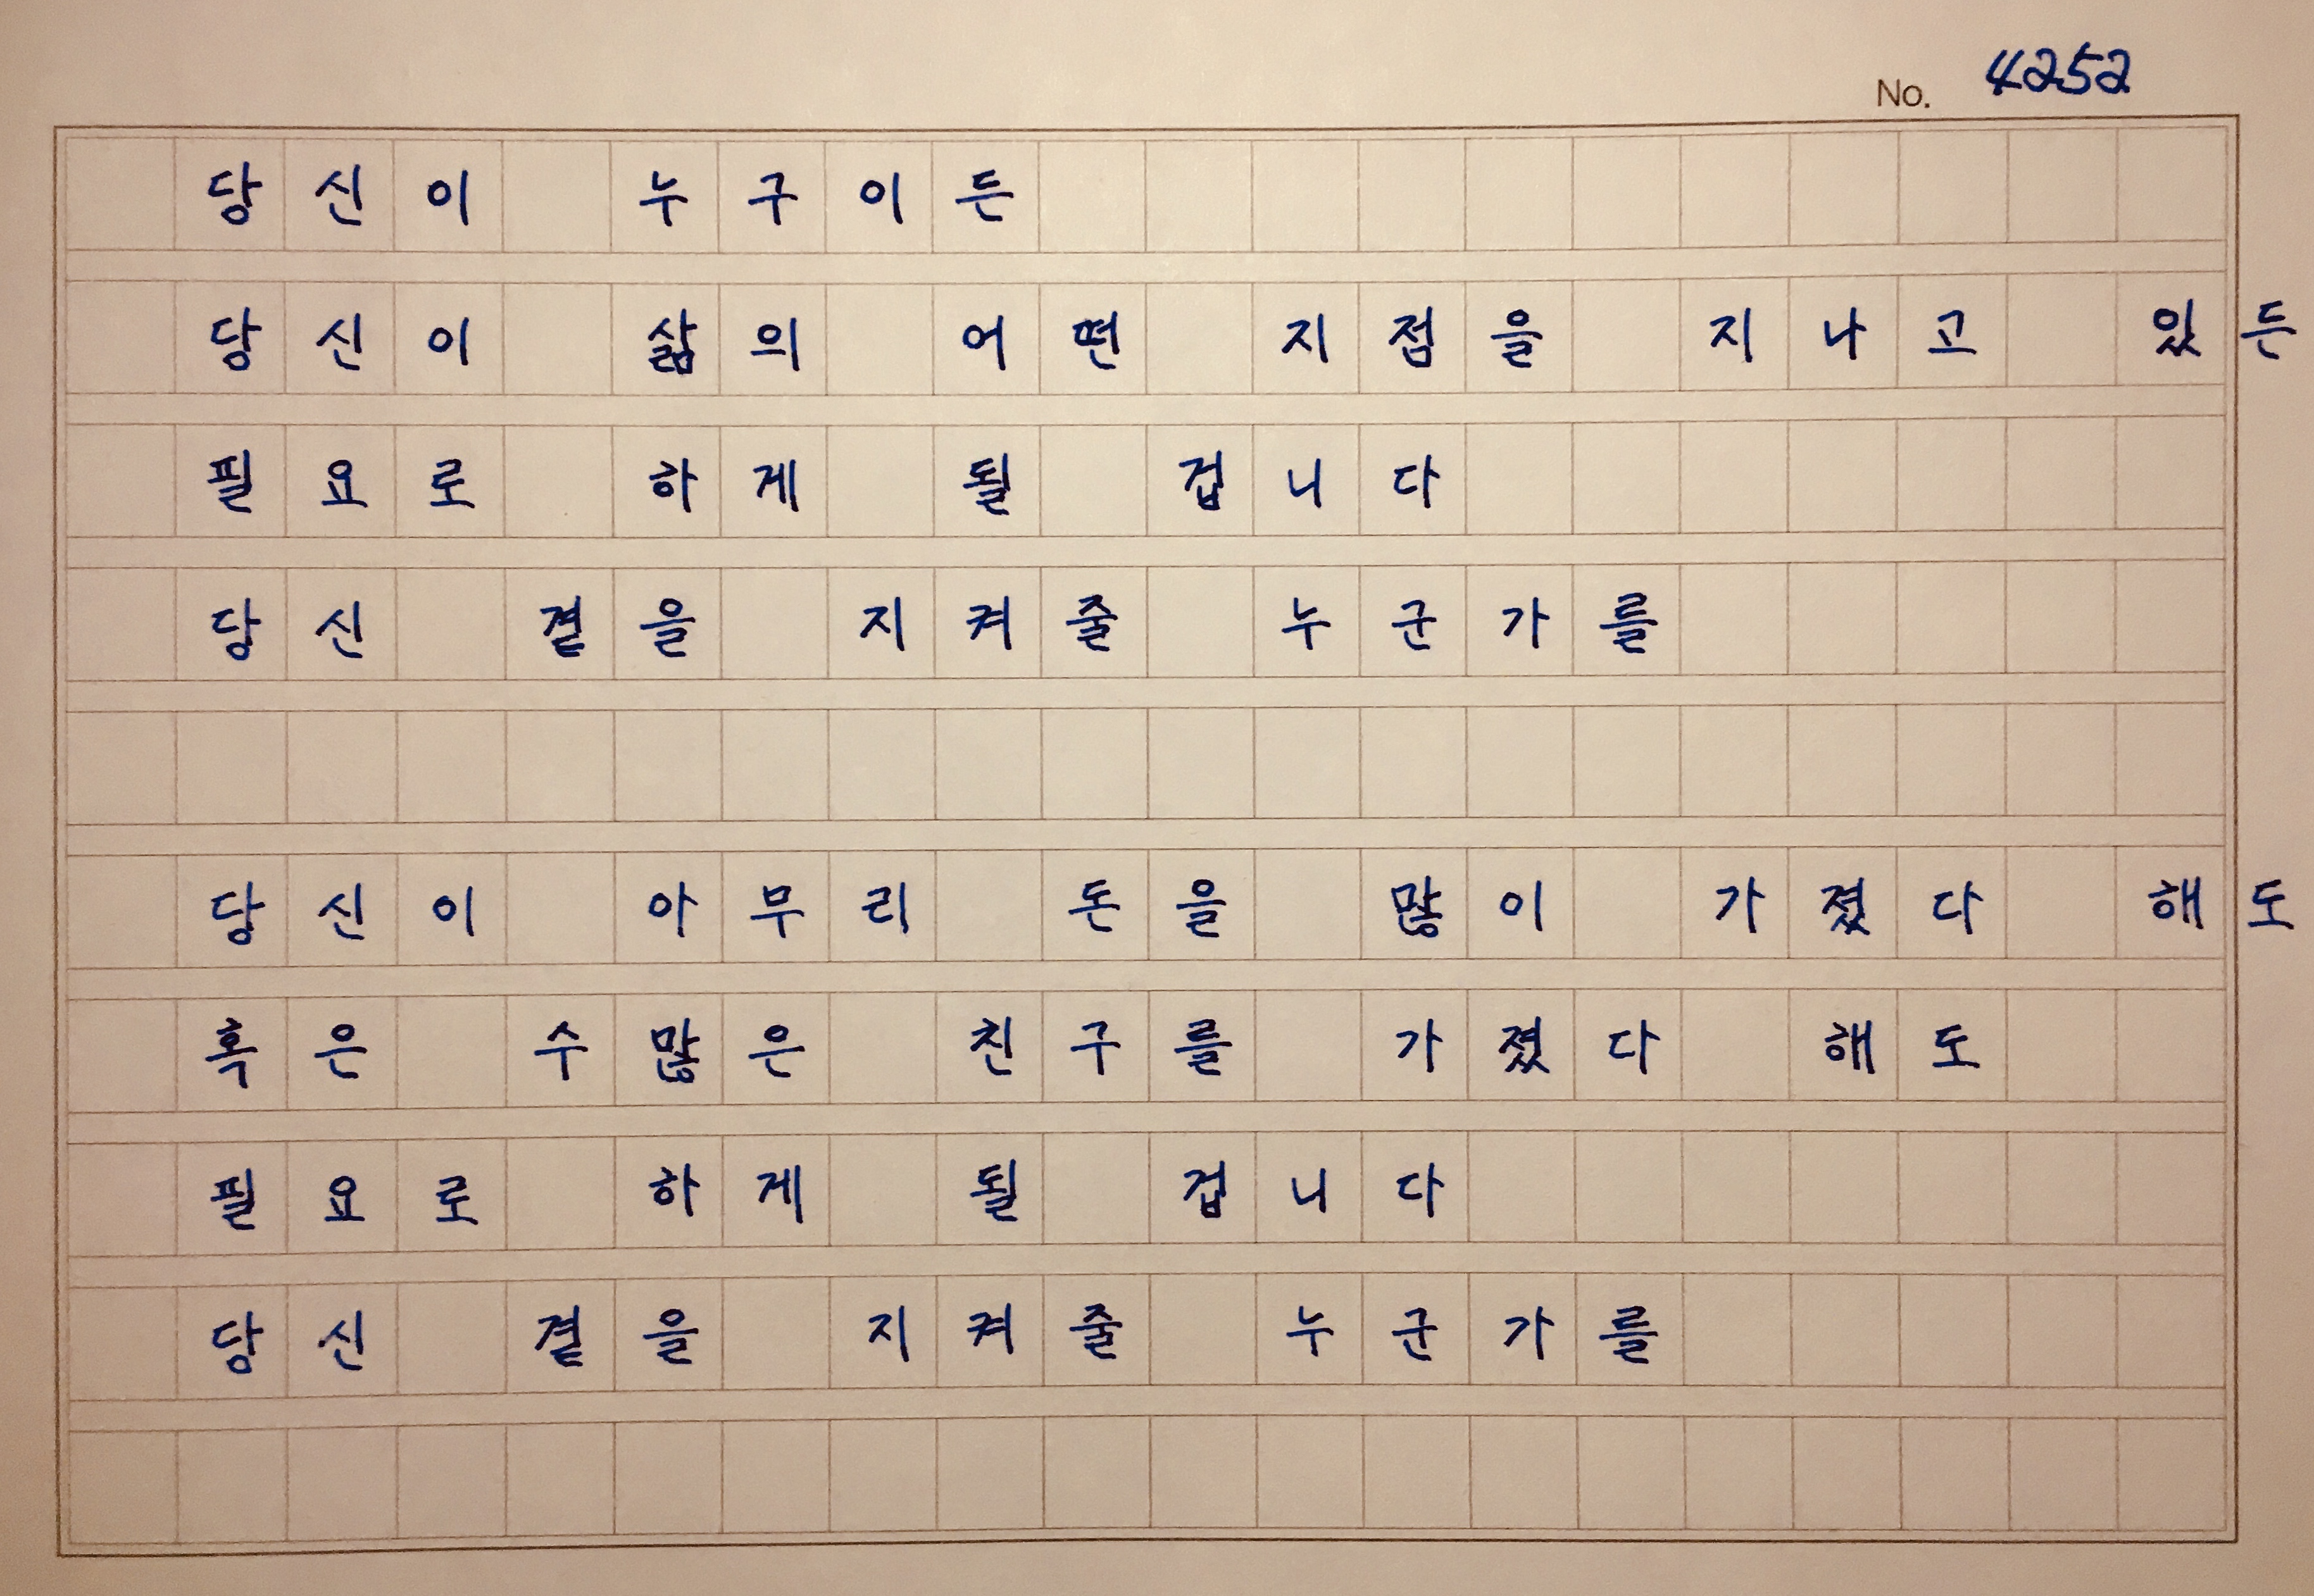 No. 4252
당신이 누구이든
당신이 삶의 어떤 지점을 지나고 있든
필요로 하게 될 겁니다
당신 곁을 지켜줄 누군가를
당신이 아무리 돈을 많이 가졌다 해도
혹은 수많은 친구를 가졌다 해도
필요로 하게 될 겁니다
당신 곁을 지켜줄 누군가를